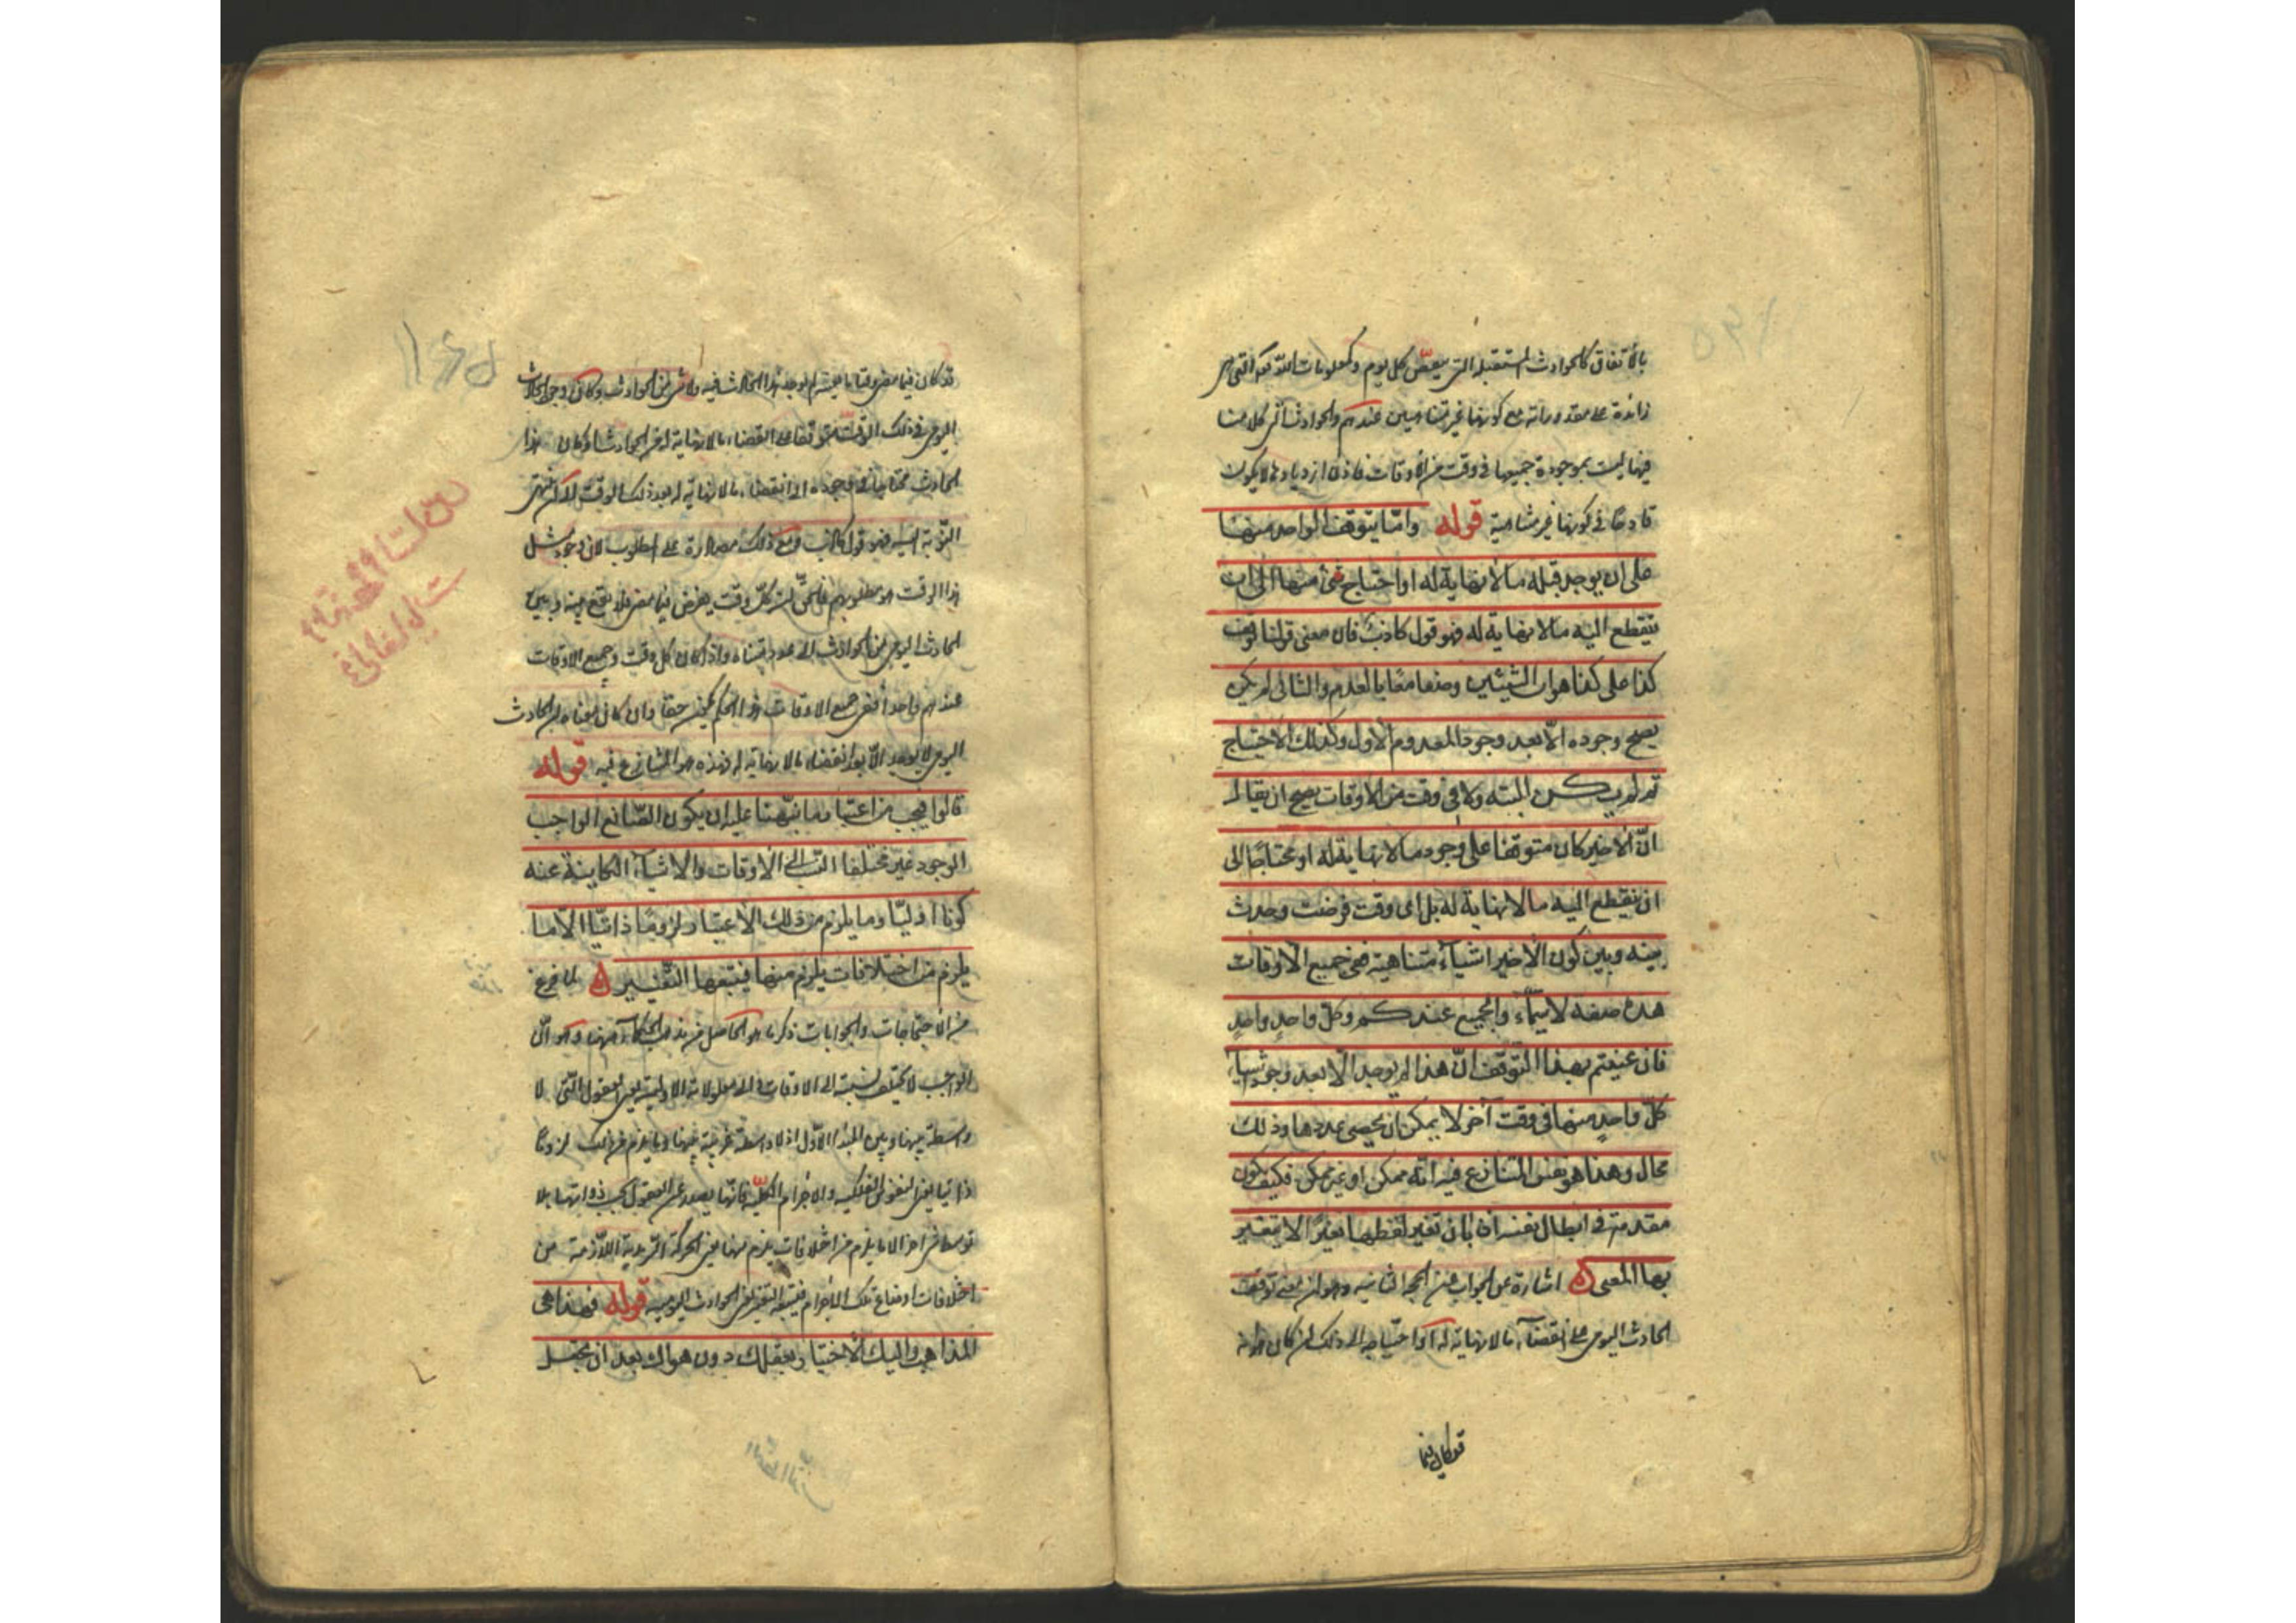 بالاتفاق كالحوادث المستقبلة التي ينقص كل يوم وكمعلومات الله تعالى التي هي
زائدة على مقدوراته مع كونهما غير متناهيين عندهم والحوادث التي كلامنا
فيها ليست بموجودة جميعها في وقت من الأوقات فاذن ازديادها لا يكون
قادحا في كونها غير متناهية قوله وامّا يتوقف الواحد منها
على ان يوجد قبله ما لا نهاية له او احتياج شئ منها الى ان
ينقطع اليه ما لا نهاية له فهو قول كاذب فان معنى قولنا توقف
كذا على كذا هو ان الشيئين وصفا معًا بالعدم والثاني لم يكن
يصح وجوده الّا بعد وجود المعدوم الأول وكذلك الاحتياج
ثم لم يكن البتة ولا في وقت من الاوقات يصح ان يقال
انّ الأخير كان متوقفا على وجود ما لا نهاية له او محتاجًا الى
ان ينقطع اليه ما لا نهاية له بل اى وقت فرضت وجدت
بينه وبين كون الأخير اشياء متناهية ففي جميع الاوقات
هذه صفته لا سيّما والجميع عندكم وكلّ واحدٍ واحدٍ
فان عنيتم بهذا التوقّف انّ هذا لم يوجد الّا بعد وجود اشياء
كلّ واحدٍ منها في وقت آخر لا يمكن ان يحصى عددها وذلك
محال وهذا هو نفس المتنازع فيه انّه ممكن او غير ممكن فكيف يكون
مقدمة في ابطال نفسه أبان تغير لفظها تغيرًا لا يتغير
بها المعنى اشارة الى الجواب عن الحجة الثانية وهو ان معنى توقف
الحادث اليومي على انقضاء ما لا نهاية له او احتياجه الى ذلك ان كان هو انه
قد كان فيما
قد كان فيما مضى وقت ما معيّن لم يوجد هذا الحادث فيه ولا شئ من الحوادث وكان وجود الحادث
اليومي في ذلك الوقت متوقفا على انقضاء ما لا نهاية له من الحوادث او كان هذا
الحادث محتاجا في وجوده الى انقضاء ما لا نهاية له بعد ذلك الوقت الى ان ينتهى
النوبة اليه فهو قول كاذب ومع ذلك مصادرة على المطلوب لان وجود مثل
هذا الوقت هو مطلوبهم فانّ كلّ وقت يفرض فيما مضى فلا يقع بينه وبين
الحادث اليومي من الحوادث الا عدد متناه واذا كان كل وقت وجميع الاوقات
عندهم واحدا ففي جميع الاوقات هذا الحكم يكون حقا وان كان معناه ان الحادث
اليومي لا يوجد الّا بعد انقضاء ما لا نهاية له فهذه هو المتنازع فيه قوله
قالوا فيجب من اعتبار ما نبّهنا عليه ان يكون الصّانع الواجب
الوجود غير مختلف النسب الى الأوقات والاشياء الكاينة عنه
كونا اوليّا وما يلزم من ذلك الاعتبار لزومًا ذاتيّا الّا ما
يلزم من اختلافات يلزم منها فيتبعها التّغيير لما فرغ
من الاحتجاجات والجوابات ذكر ما هو الحاصل من مذهب الحكماء ههنا وهو انّ
الواجب لا يختلف نسبته الى الاوقات والى معلولاته الاولية يعني العقول التّي لا
واسطة بينها وبين المبدا الاوّل اذ لا واسطة غريبة بينها وما يلزم من ذلك لزومًا
ذاتيا يعنى النفوس الفلكية والاجرام الكليّة فانّها يصدر عن العقول بحسب ذواتها بلا
توسط شئ اخر الا ما يلزم من اختلافات يلزم منها يعنى الحركة السرمدية اللازمة من
اختلافات اوضاع تلك الاجرام فيتبعه التغير يعنى الحوادث اليومية قوله فهذا هي
المذاهب واليك الاختيار بعقلك دون هواك بعد ان تجعل